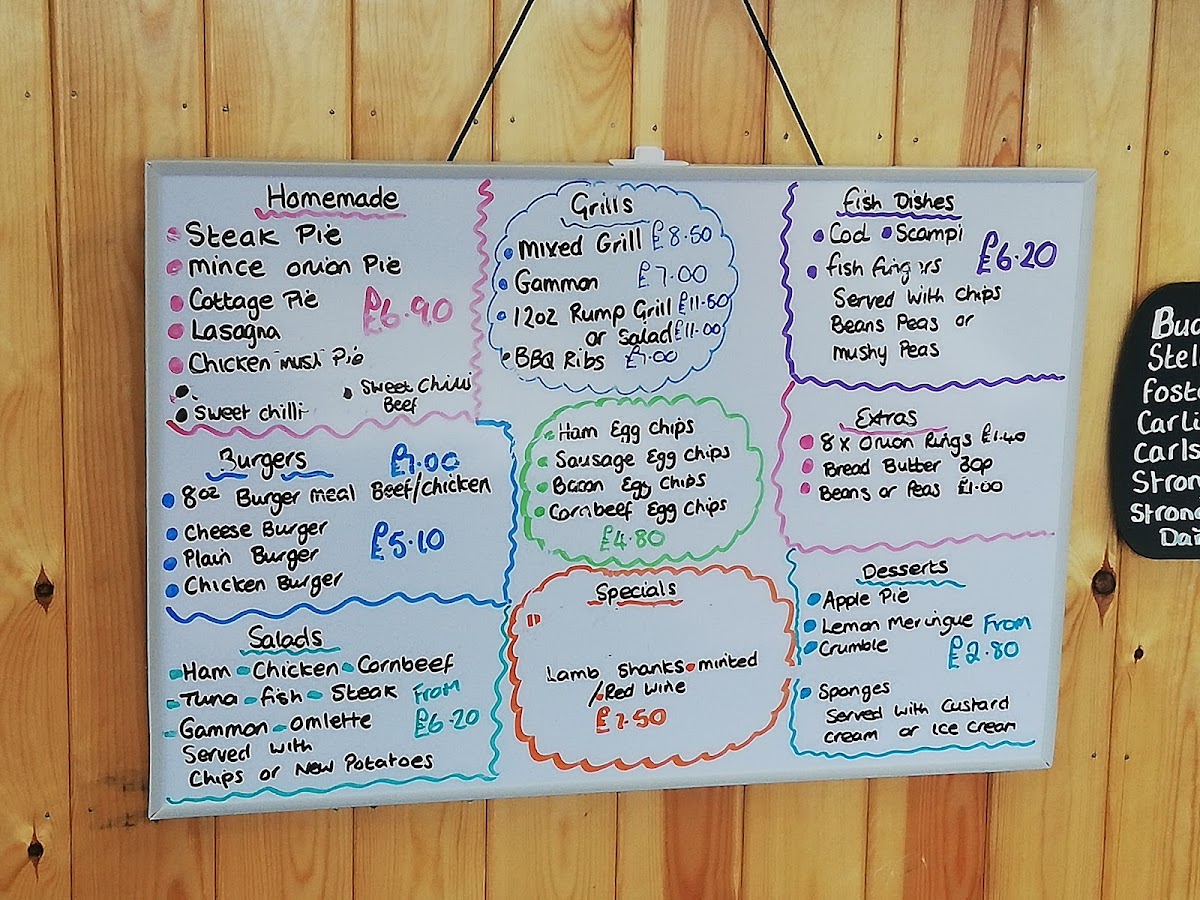 Homemade
Steak Pie
mince onion Pie
Cottage Pie
£6.90
Lasagna
Chicken mush Pie
Sweet Chilli
Beef
Sweet chilli
Burgers
£7.00
8oz Burger meal Beef/chicken
Cheese Burger
£5.10
Plain Burger
Chicken Burger
Salads
Ham Chicken Cornbeef
Tuna fish Steak From
Gammon omlette £6.20
Served with
Chips or New Potatoes
Grills
mixed Grill £8.50
Gammon £7.00
12oz Rump Grill £11.50
or Salad £11.00
BBQ Ribs £7.00
Ham Egg chips
Sausage Egg chips
Bacon Egg chips
Cornbeef Egg chips
£4.80
Specials
Lamb Shanks minted
/Red wine
£7.50
fish Dishes
Cod Scampi
£6.20
fish fingers
Served with chips
Beans Peas or
mushy Peas
Extras
8x Onion Rings £1.40
Bread Butter 30p
Beans or Peas £1.00
Desserts
Apple Pie
Lemon Meringue From
Crumble £2.80
Sponges
Served with custard
cream or Ice cream
Bud
Stell
Foste
Carli
Carls
Stron
Strong
Dai